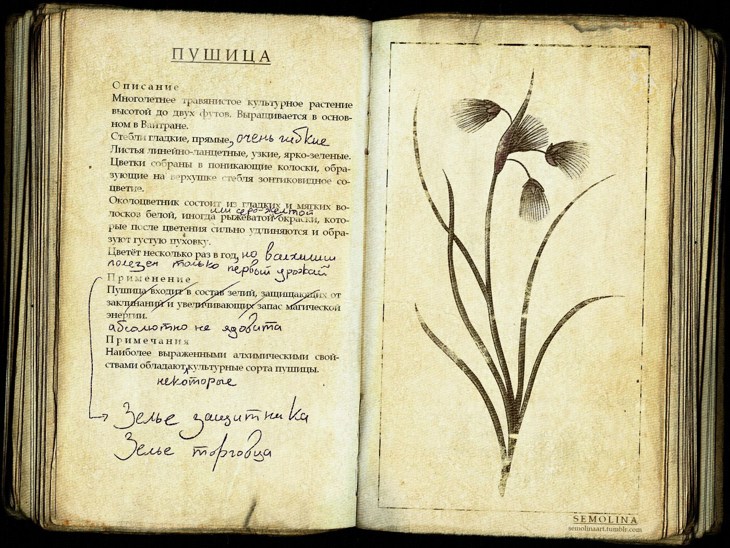 ПУШИЦА
Описание
Многолетнее травянистое культурное растение
высотой до двух футов. Выращивается в основ-
ном в Ванτране.
Стебли гладкие, прямые, очень гибкие
Листья линейно-ланцетные, узкие, ярко-зеленые.
Цветки собраны в поникающие колоски, обра-
зующие на верхушке стебля зонтиковидное со-
цветие.
Околоцветник состоит из гладких и мягких во-
или серо-желтой
лосков белой, иногда рыжеватой окраски, кото-
рые после цветения сильно удлиняются и обра-
зуют густую пуховку.
Цветёт несколько раз в год, но в алхимии
полезен только первый урожай
Применение
Пушица входит в состав зелий, защищающих от
заклинаний и увеличивающих запас магической
энергии.
абсолютно не ядовита
Примечания
Наиболее выраженными алхимическими свой-
ствами обладают культурные сорта пушицы.
некоторые
Зелье защитника
Зелье торговца
SEMOLINA
semolinaart.tumblr.com